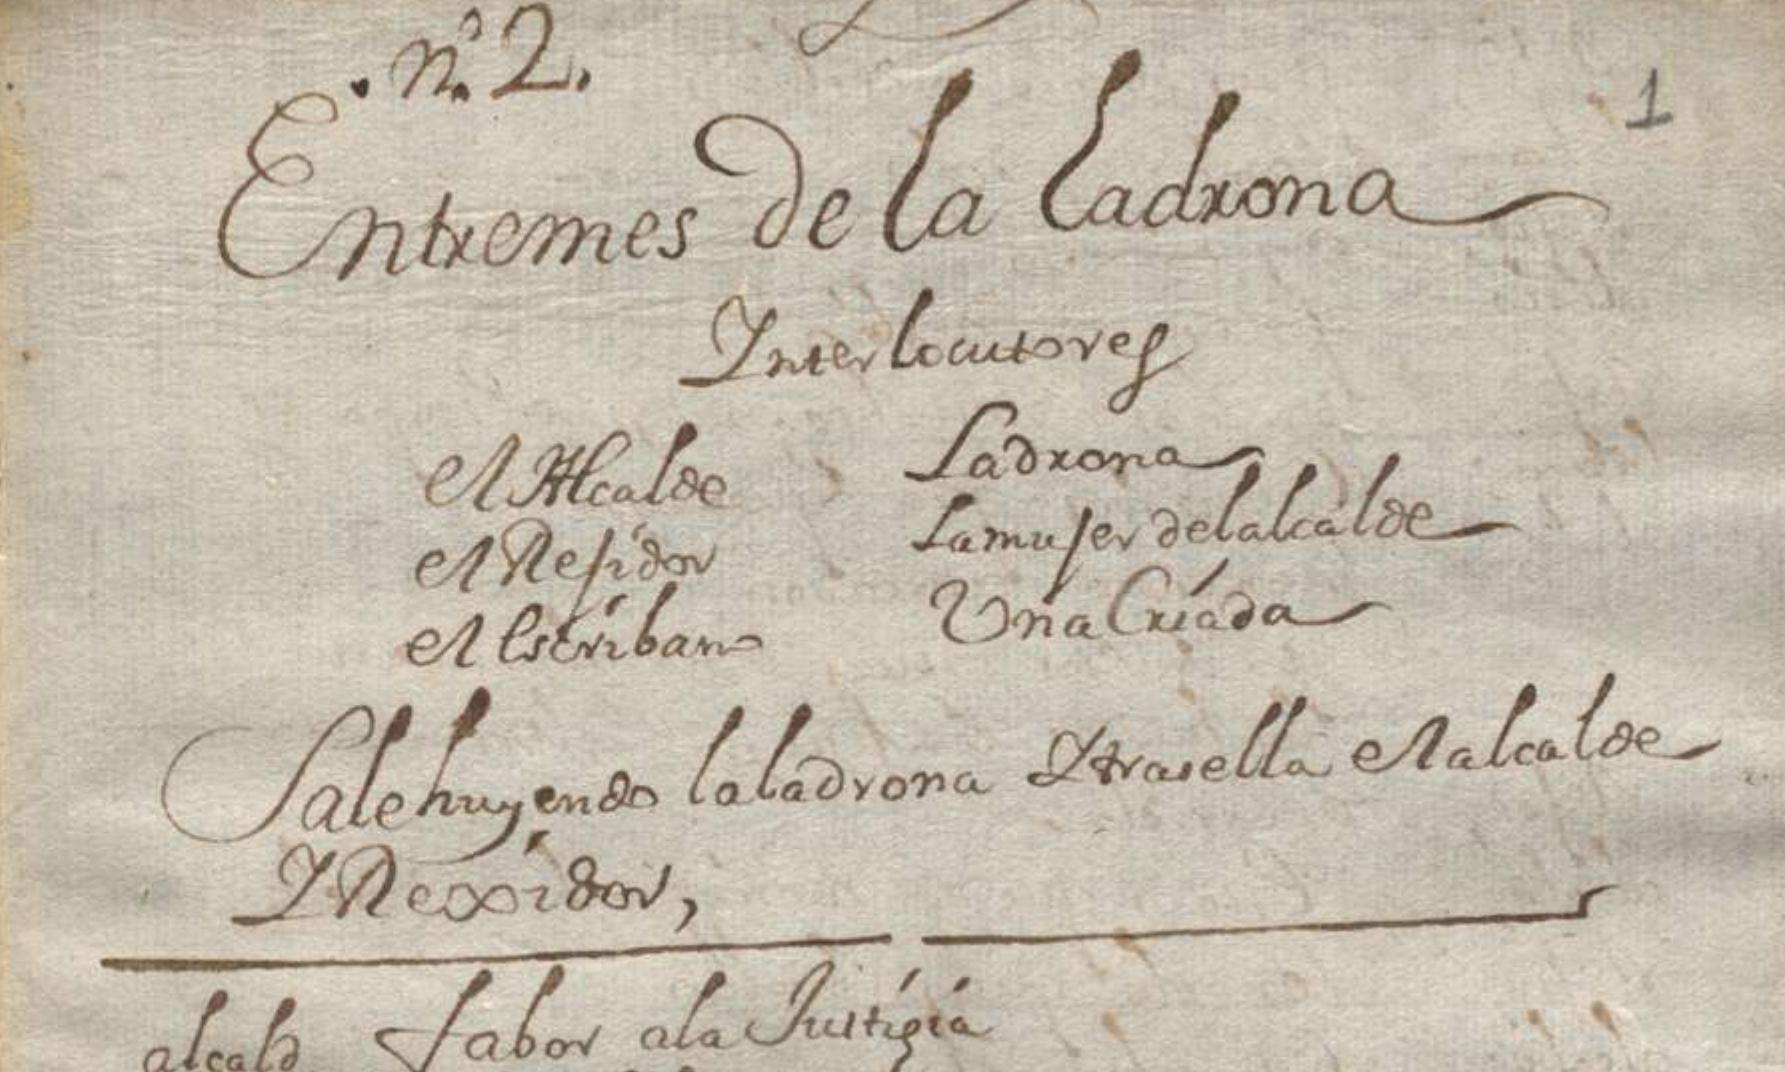 . nº 2.
1
Entremes de la Ladrona
Interlocutores
el Alcalde
el Rejidor
el Escribano
Ladrona
La mujer del alcalde
Una Criada
Sale huyendo la ladrona Y tras ella el alcalde
Y Rexidor,
alcald fabor a la Justiçia